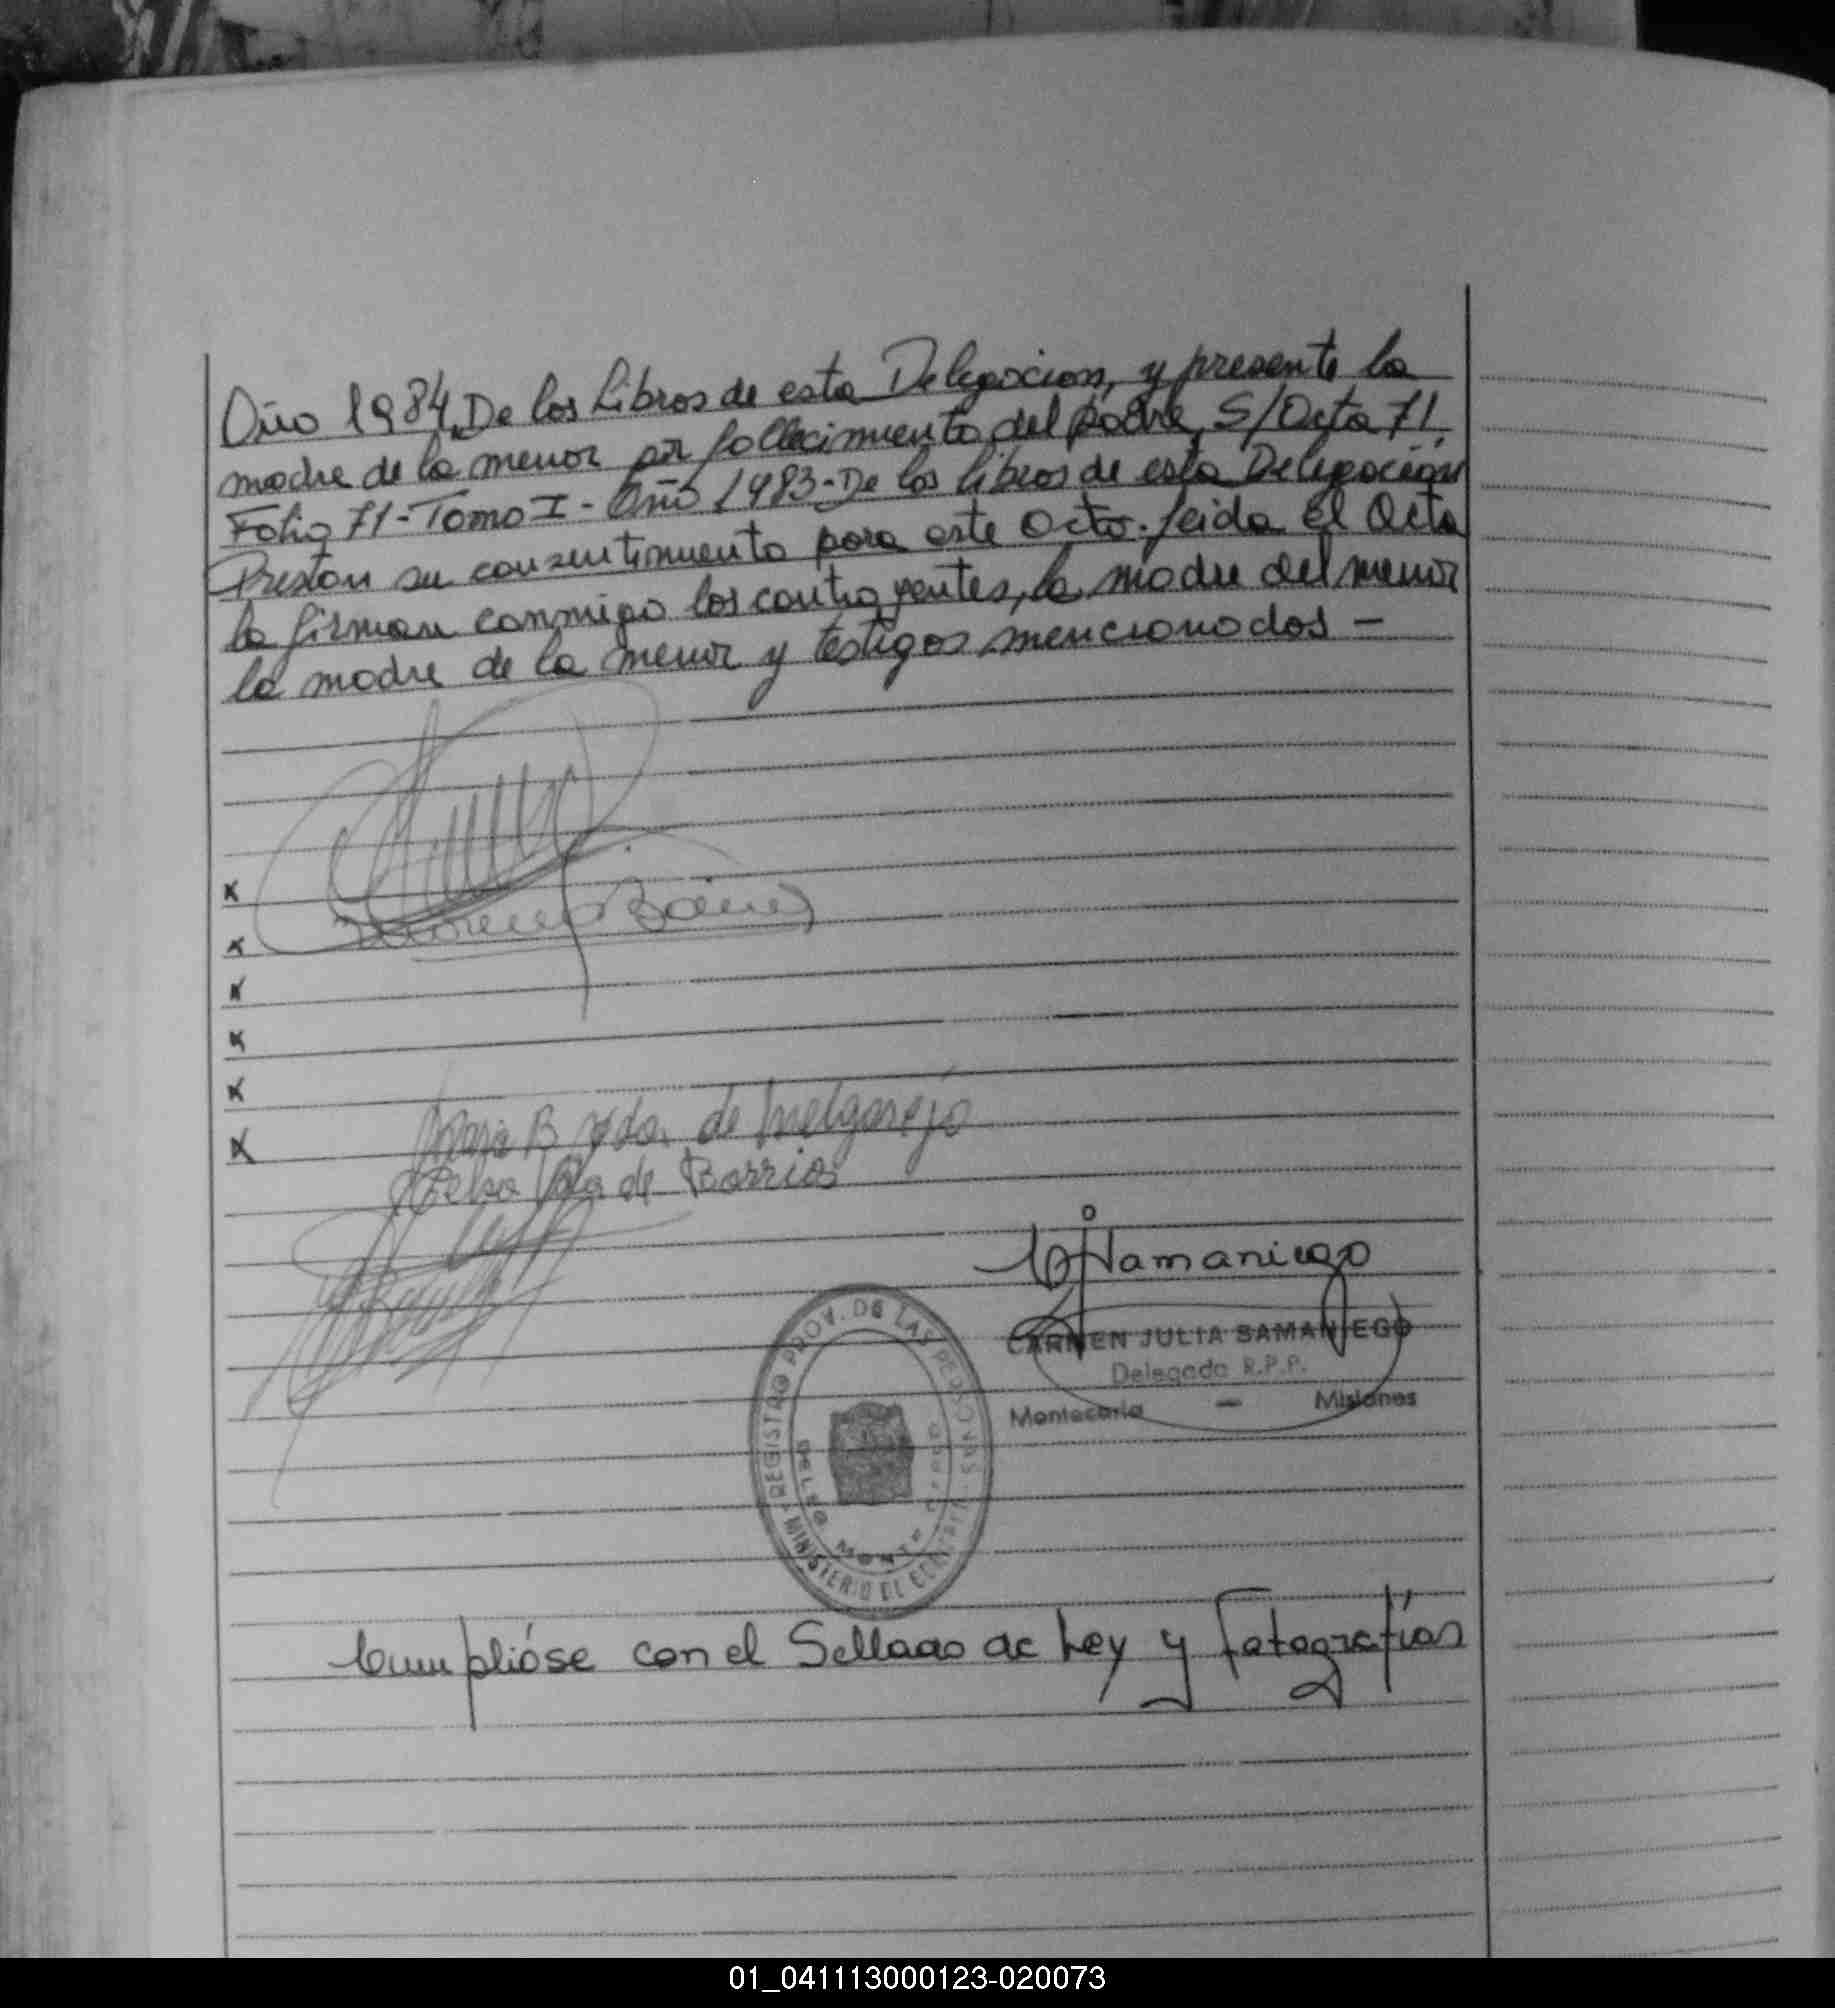 Año 1984, De los Libros de esta Delegacion, y presente la
madre de la menor por fallecimiento del padre, S/Acta 71,
Folio 71 - Tomo I - Año 1983 - De los libros de esta Delegación
Prestan su consentimiento para este acto. Leida el Acta
la firman conmigo los contrayentes, la madre del menor
la madre de la menor y testigos mencionados -
x
x
x
x
x
x
Maria B Vda. de Melgarejo
Vda de Barrios
CJSamaniego
CARMEN JULIA SAMANIEGO
Delegada R.P.P.
Montecarlo - Misiones
REGISTRO PROV. DE LAS PERSONAS
Cumplióse con el Sellado de Ley y fotografías
01_041113000123-020073